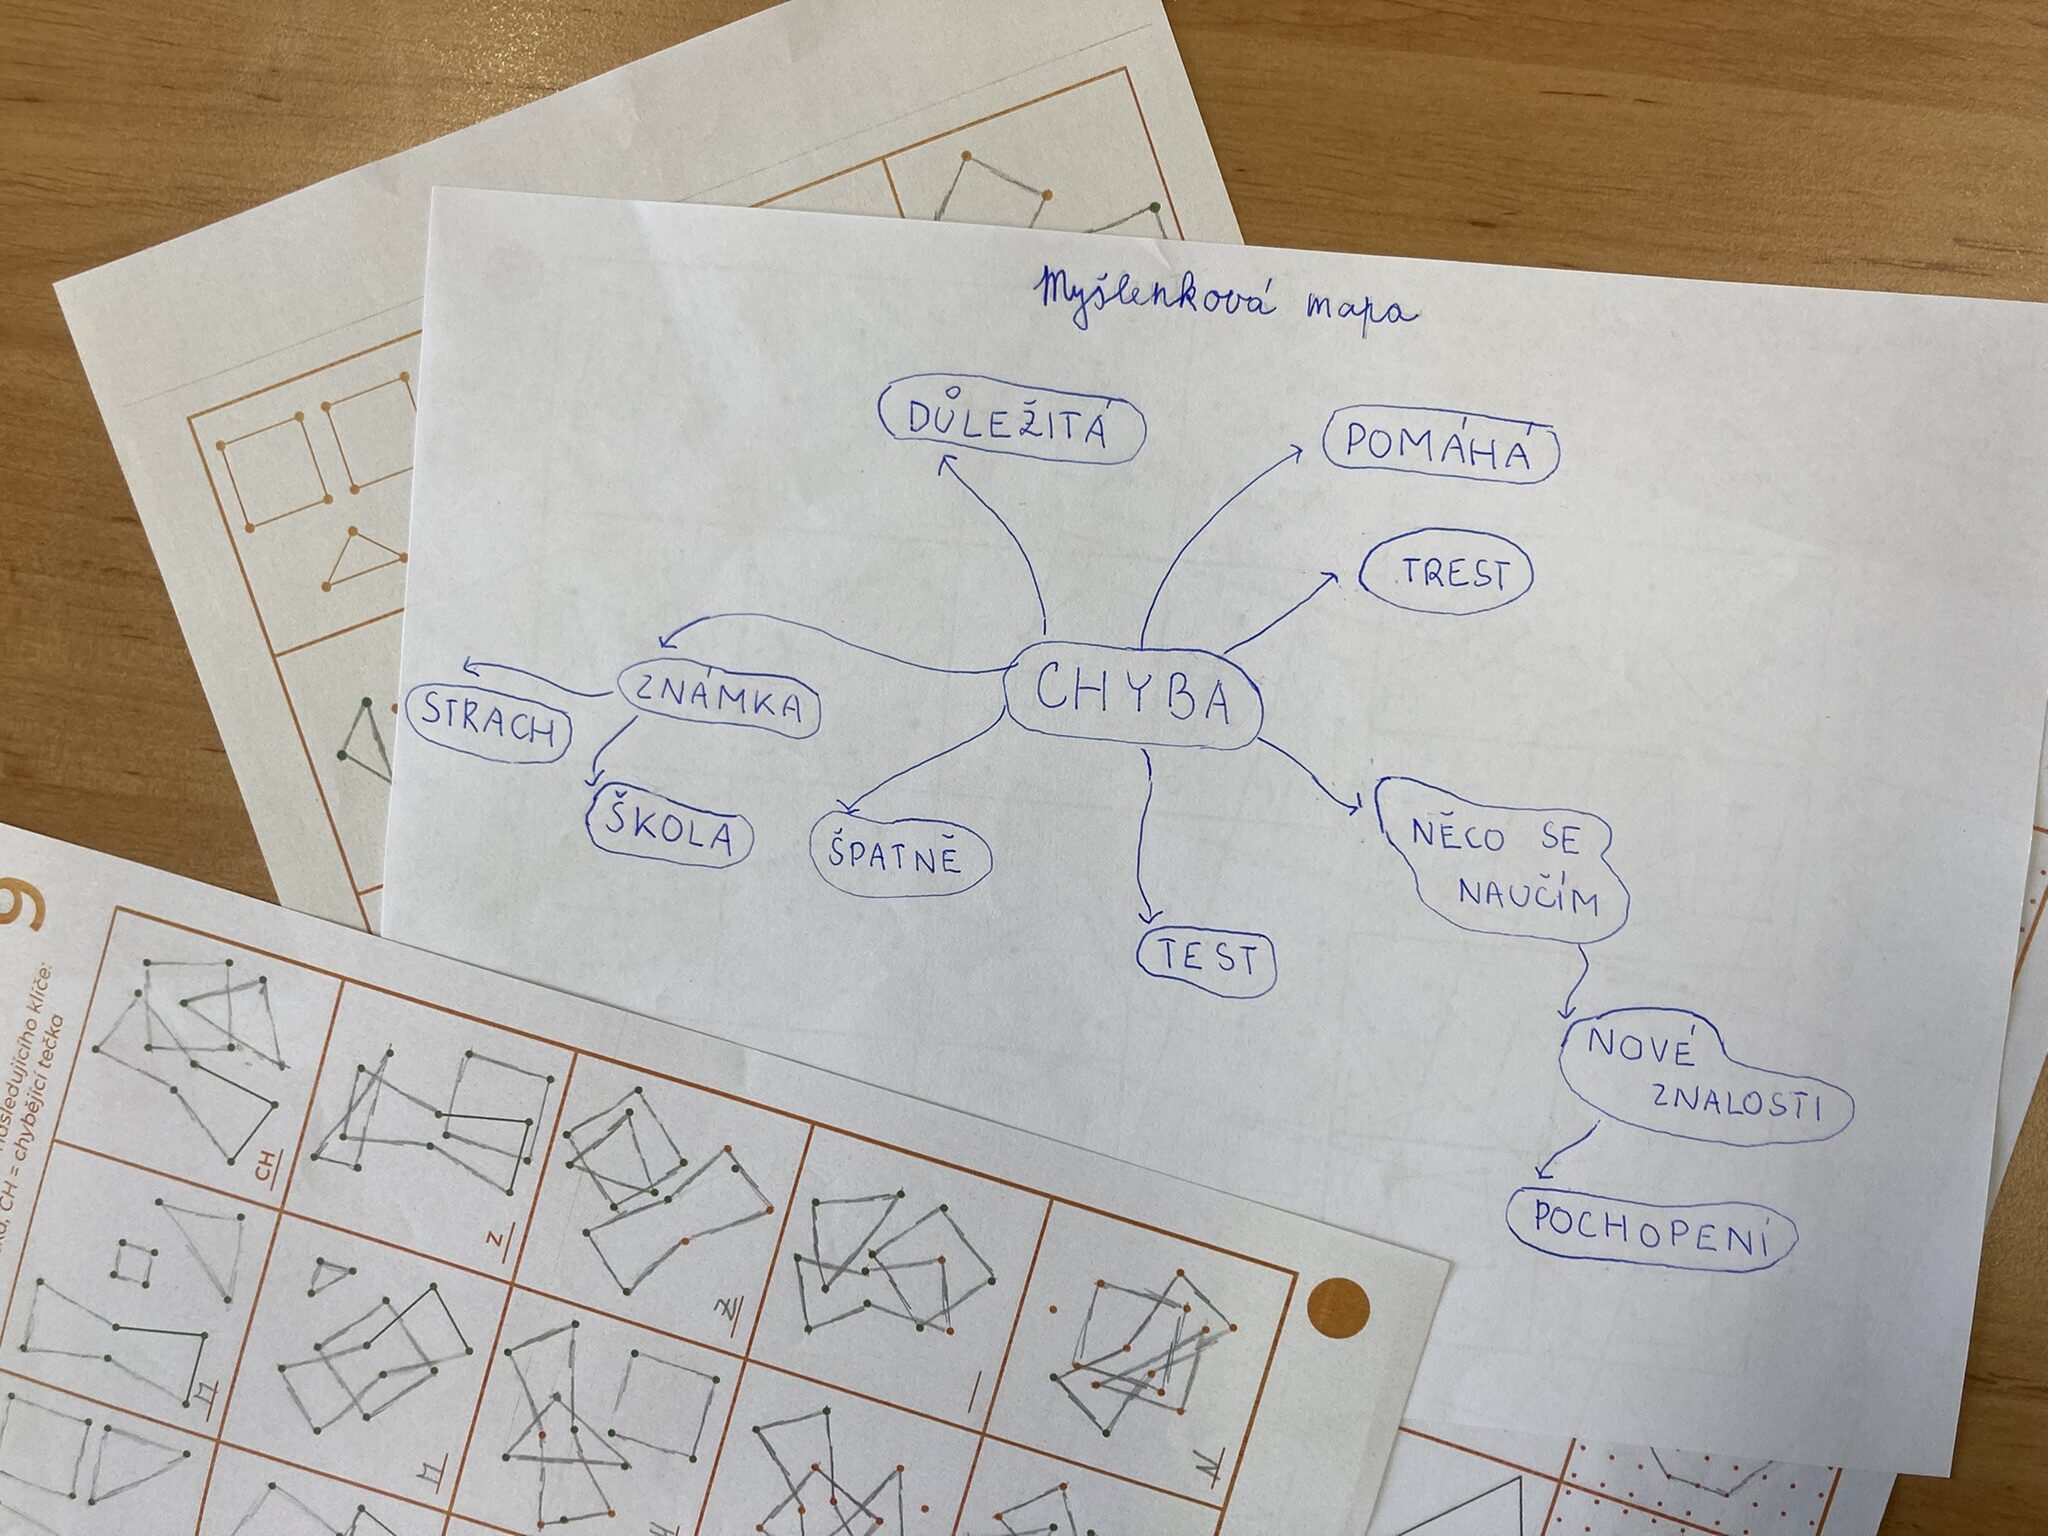 Myšlenková mapa
DŮLEŽITÁ
POMÁHÁ
TREST
CHYBA
ZNÁMKA
STRACH
ŠKOLA
ŠPATNĚ
TEST
NĚCO SE
NAUČÍM
NOVÉ
ZNALOSTI
POCHOPENÍ
9
následujícího klíče:
CH = chybějící tečka
CH
Z
Z
N